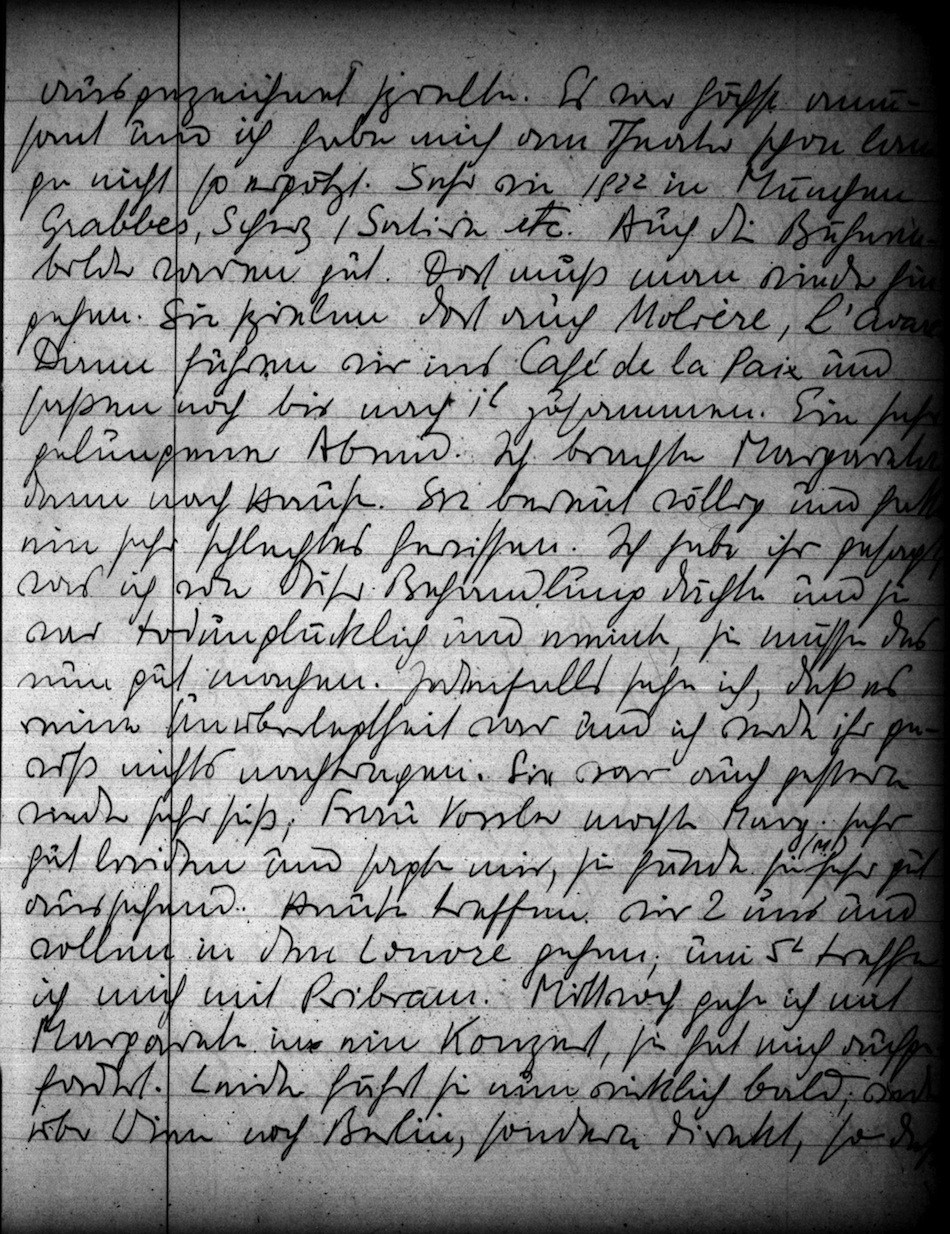 ausgezeichnet spielte. Es war höchst amü-
sant und ich habe mich am Theater schon lan
ge nicht so ergötzt. Sehr wie 1922 in München
Grabbes, Scherz, Satire etc. Auch die Bühnen-
bilder waren gut. Dort muß man wieder hin
gehen. Sie spielen dort auch Molière, L'avare
Dann fuhren wir ins Café de la Paix und
saßen noch bis nach 1ʰ zusammen. Ein sehr
gelungener Abend. Ich brachte Margarete
dann nach Hause. Sie bereut völlig und hatte
ein sehr schlechtes Gewissen. Ich habe ihr gesagt,
was ich von dieser Behandlung dächte und sie
war todunglücklich und meinte, sie müsse das
nun gut machen. Jedenfalls sehe ich, daß es
reine Unüberlegtheit war und ich werde ihr ge-
wiß nichts nachtragen. Sie war auch gestern
wieder sehr süß; Frau Vossler mochte Marg. sehr
gut leiden und sagte mir, sie fände sie (M) sehr gut
aussehend. Heute treffen wir 2 uns und
wollen in den Louvre gehen; um 5ʰ treffe
ich mich mit Pribram. Mittwoch gehe ich mit
Margarete in ein Konzert, sie hat mich aufge
fordert. Leider fährt sie nun wirklich bald,
über Wien nach Berlin, sondern direkt, so daß